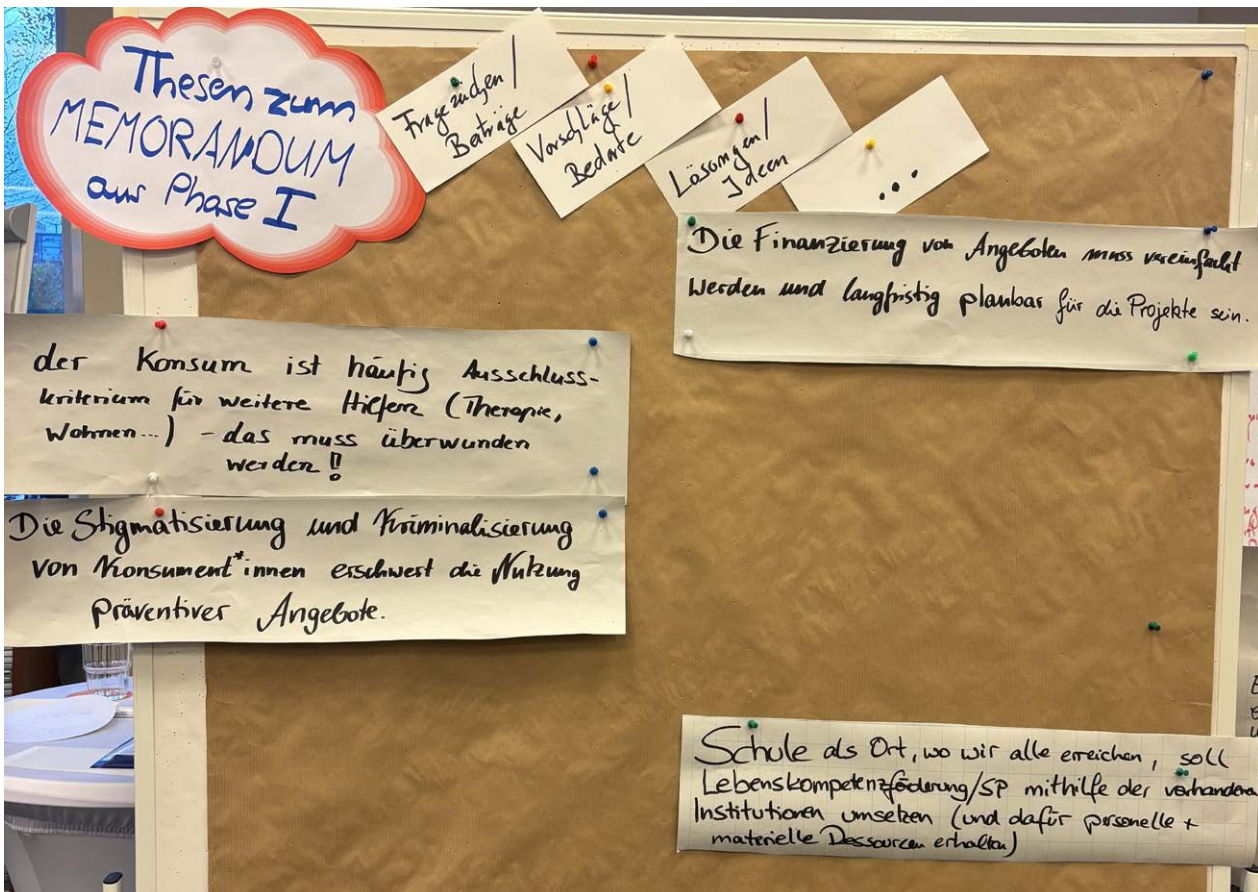 Thesen zum
MEMORANDUM
aus Phase I
Fragezeichen/
Beiträge
Vorschläge/
Bedarfe
Lösungen/
Ideen
...
Die Finanzierung von Angeboten muss vereinfacht
werden und langfristig planbar für die Projekte sein.
der Konsum ist häufig Ausschluss-
kriterium für weitere Hilfen (Therapie,
Wohnen...) - das muss überwunden
werden!!
Die Stigmatisierung und Kriminalisierung
von Konsument*innen erschwert die Nutzung
präventiver Angebote.
Schule als Ort, wo wir alle erreichen, soll
Lebenskompetenzförderung/SP mithilfe der vorhandenen
Institutionen umsetzen (und dafür personelle +
materielle Ressourcen erhalten)